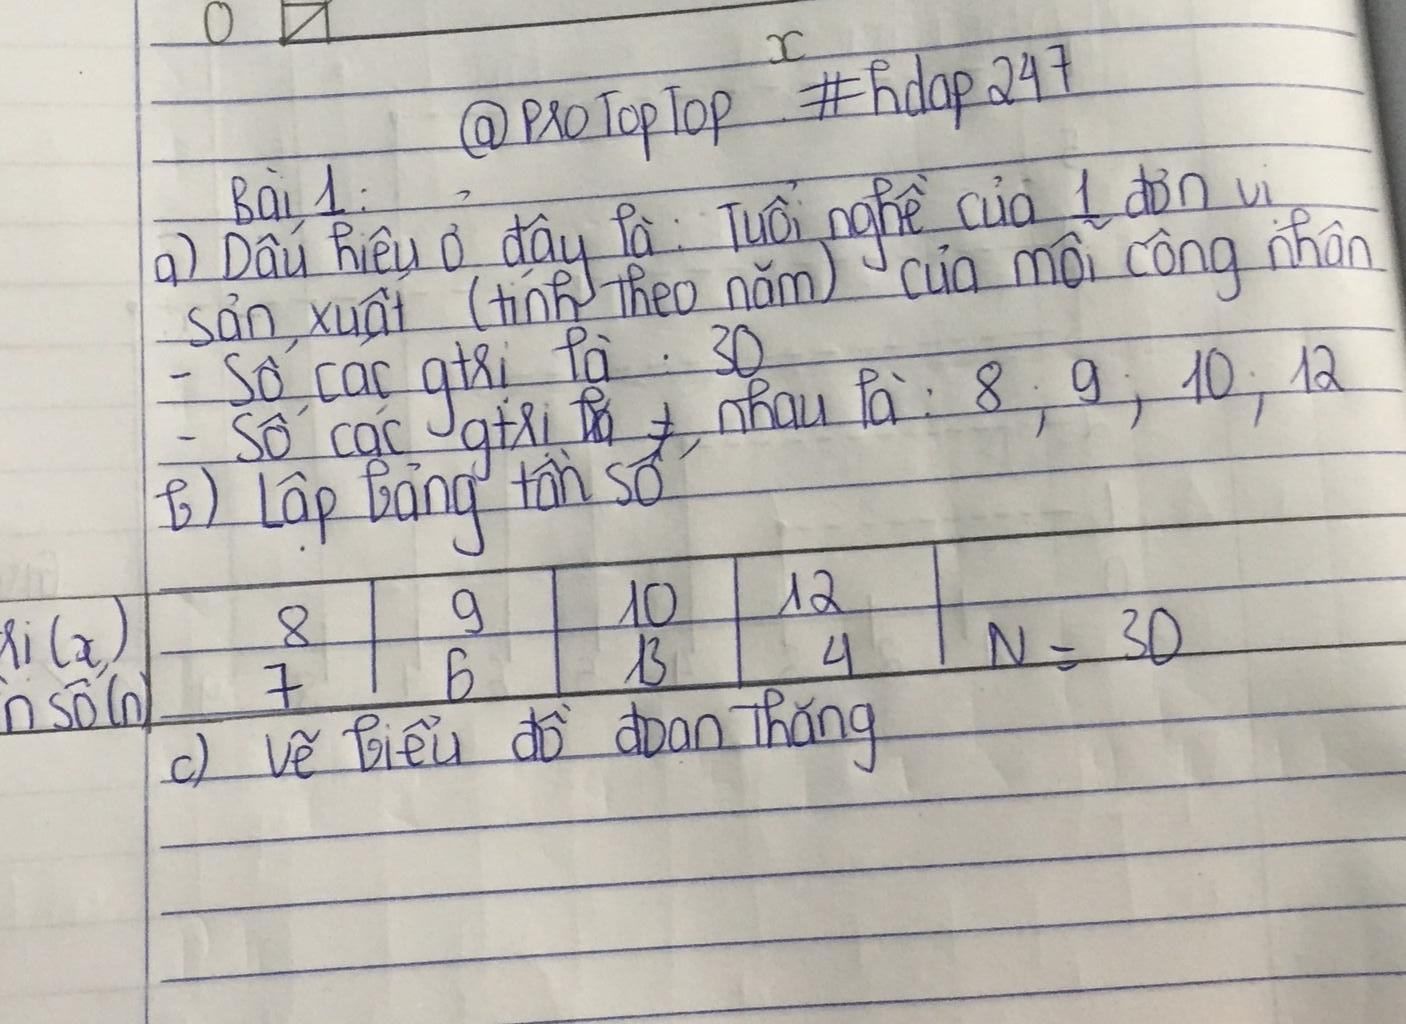 0
x
@PROTOPTOP #hdap247
Bài 1:
a) Dấu hiệu ở đây là: Tuổi nghề của 1 đơn vị
sản xuất (tính theo năm) của mỗi công nhân
- Số các gtri là : 30
- Số các gtri ≠ nhau là: 8; 9; 10; 12
b) Lập bảng tần số
ri(x) 8 9 10 12
n số(n) 7 6 13 4 N = 30
c) vẽ biểu đồ đoạn thẳng